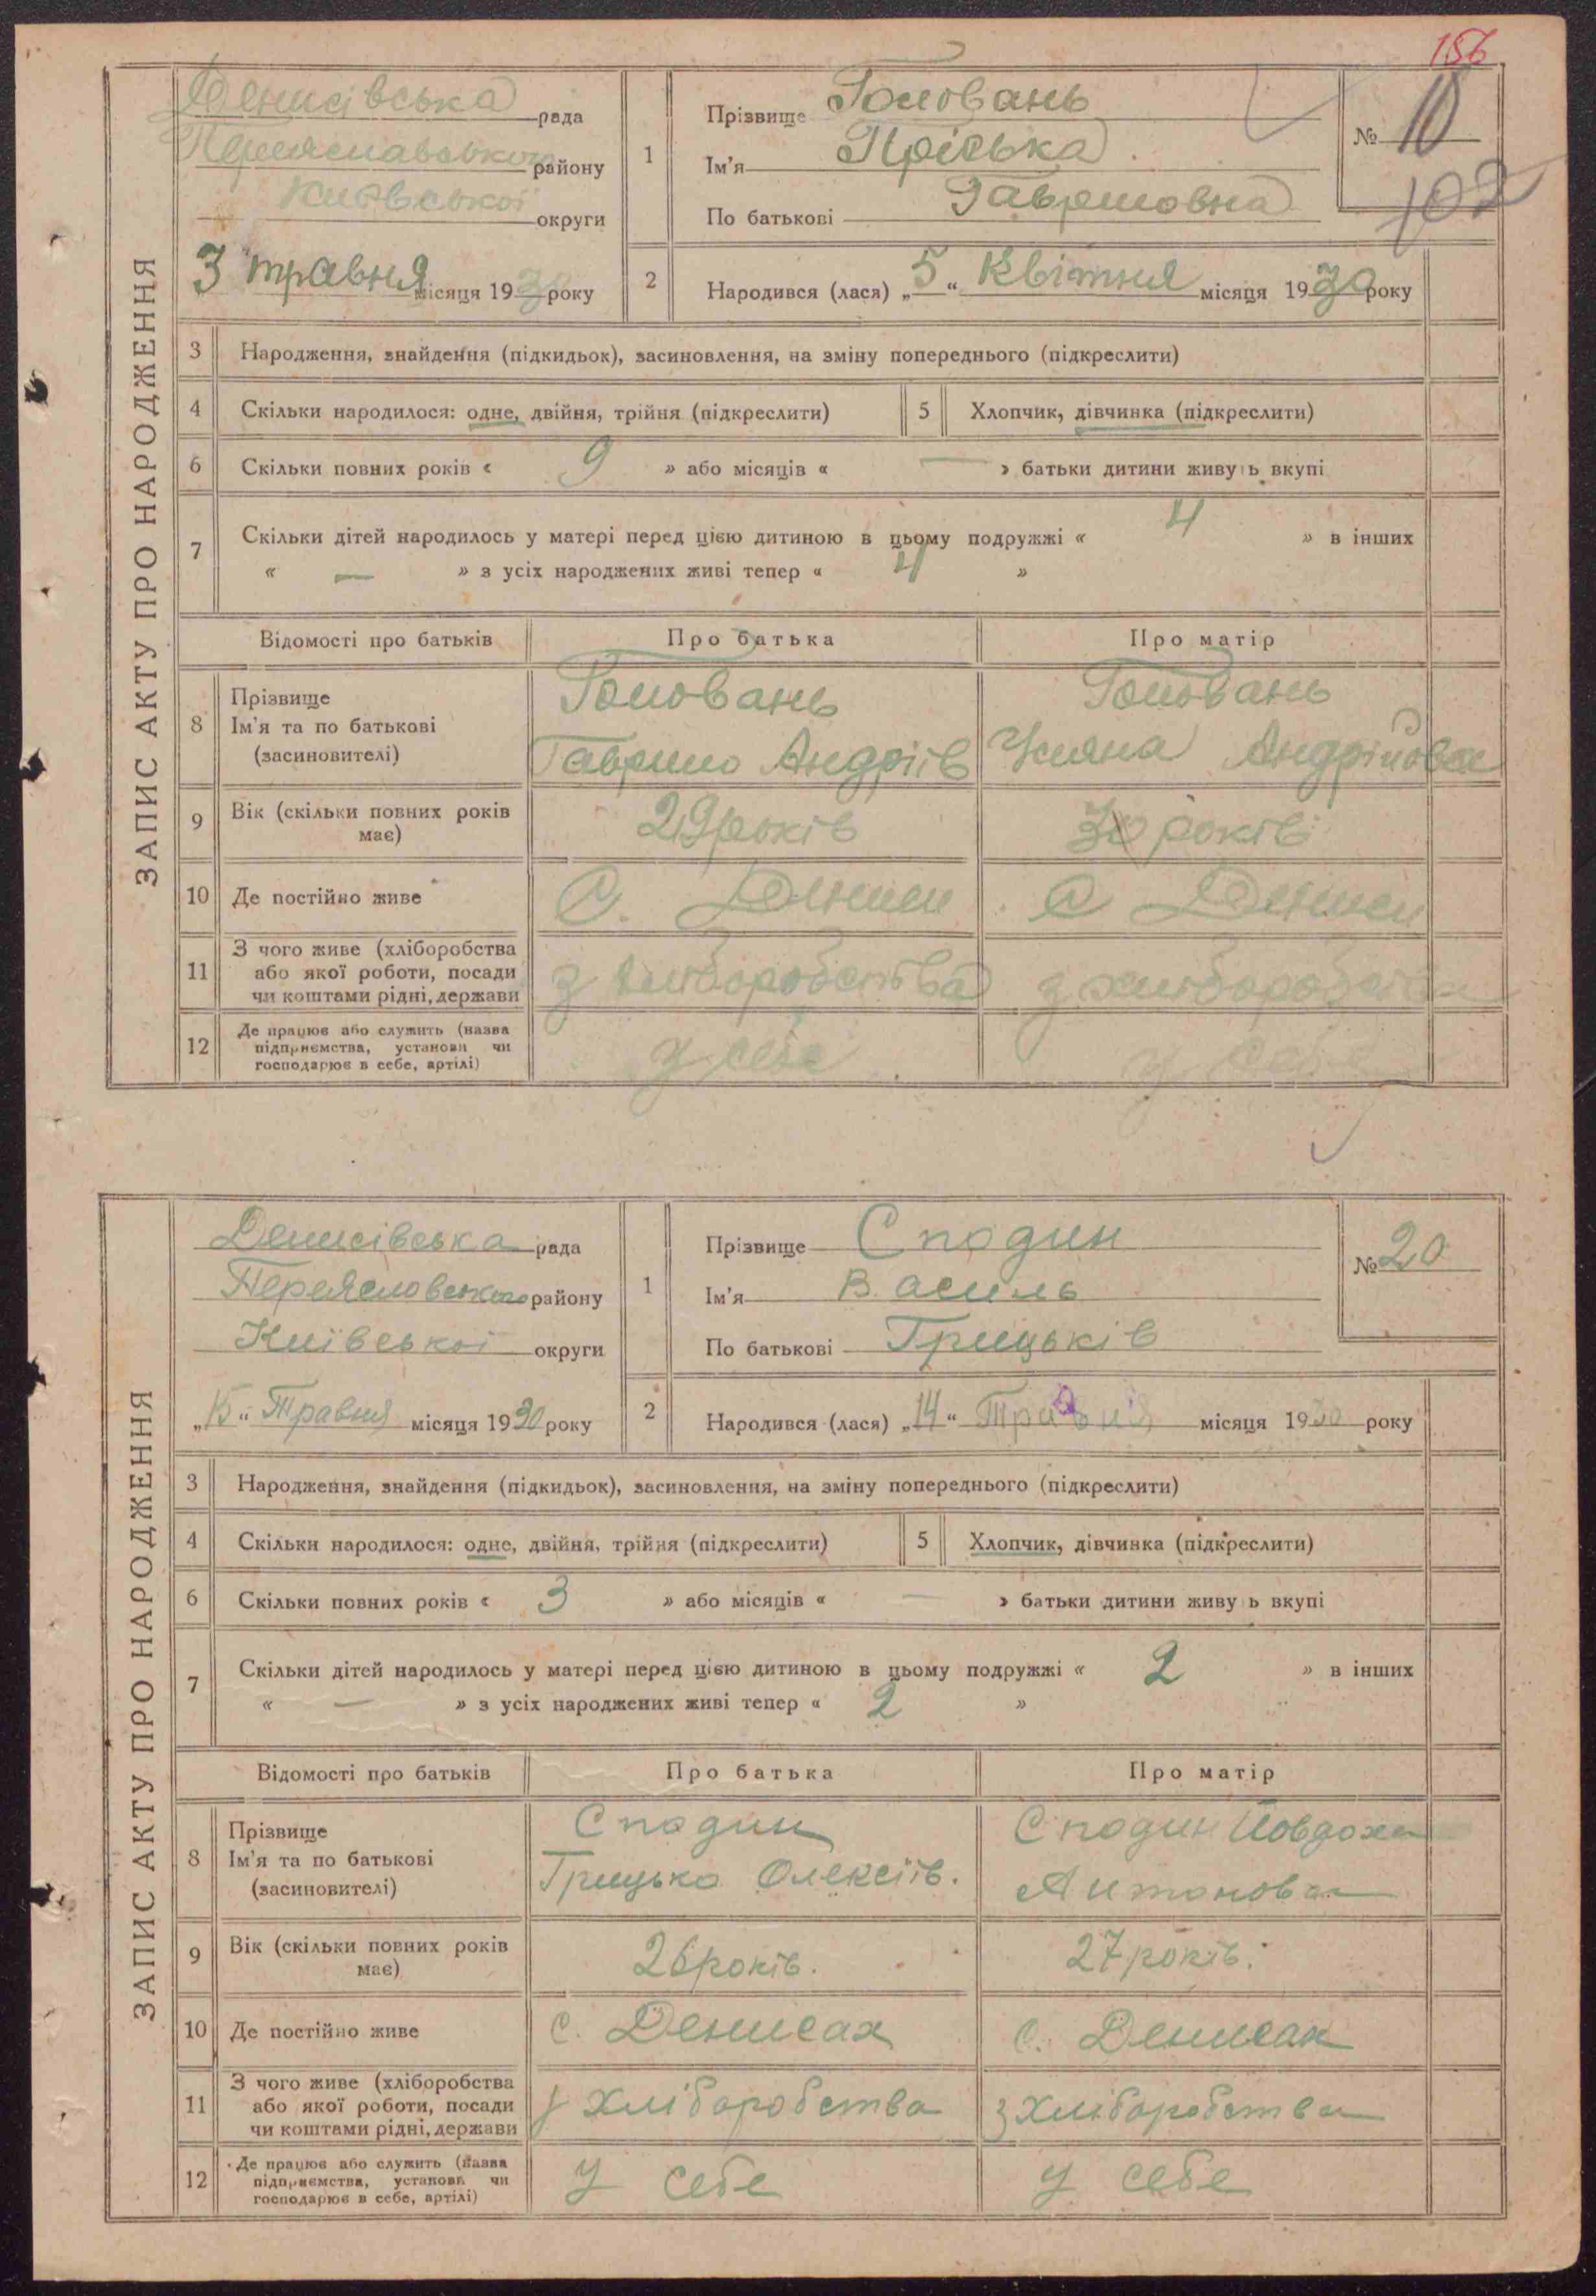 156
ЗАПИС АКТУ ПРО НАРОДЖЕННЯ
Денисівська рада
Переяславського району
Київської округи
3 травня місяця 1930 року
1
Прізвище Головань
Ім'я Пріська
По батькові Гавриловна
№ 10
102
2
Народився (лася) „5“ Квітня місяця 1930 року
3 Народження, знайдення (підкидьок), засиновлення, на зміну попереднього (підкреслити)
4 Скільки народилося: одне, двійня, трійня (підкреслити) 5 Хлопчик, дівчинка (підкреслити)
6 Скільки повних років « 9 » або місяців « — » батьки дитини живуть вкупі
7 Скільки дітей народилось у матері перед цією дитиною в цьому подружжі « 4 » в інших
« — » з усіх народжених живі тепер « 4 »
Відомості про батьків Про батька Про матір
8 Прізвище Ім'я та по батькові (засиновителі)
Головань Головань
Гаврило Андріїв Уляна Андрійовна
9 Вік (скільки повних років має) 29 років 30 років
10 Де постійно живе С. Дениси С Дениси
11 З чого живе (хліборобства або якої роботи, посади чи коштами рідні, держави з хліборобства з хліборобства
12 Де працює або служить (назва підприємства, установи чи господарює в себе, артілі) у себе у себе
ЗАПИС АКТУ ПРО НАРОДЖЕННЯ
Денисівська рада
Переясловського району
Київської округи
„15“ Травня місяця 1930 року
1
Прізвище Сподин
Ім'я Василь
По батькові Грицьків
№ 20
2
Народився (лася) „14“ Травня місяця 1930 року
3 Народження, знайдення (підкидьок), засиновлення, на зміну попереднього (підкреслити)
4 Скільки народилося: одне, двійня, трійня (підкреслити) 5 Хлопчик, дівчинка (підкреслити)
6 Скільки повних років « 3 » або місяців « — » батьки дитини живуть вкупі
7 Скільки дітей народилось у матері перед цією дитиною в цьому подружжі « 2 » в інших
« — » з усіх народжених живі тепер « 2 »
Відомості про батьків Про батька Про матір
8 Прізвище Ім'я та по батькові (засиновителі)
Сподин Сподин Йовдоха
Грицько Олексіїв. Антоновна
9 Вік (скільки повних років має) 26 років. 27 років.
10 Де постійно живе с. Денисах с. Денисах
11 З чого живе (хліборобства або якої роботи, посади чи коштами рідні, держави з Хліборобства з Хліборобства
12 Де працює або служить (назва підприємства, установи чи господарює в себе, артілі) У себе У себе